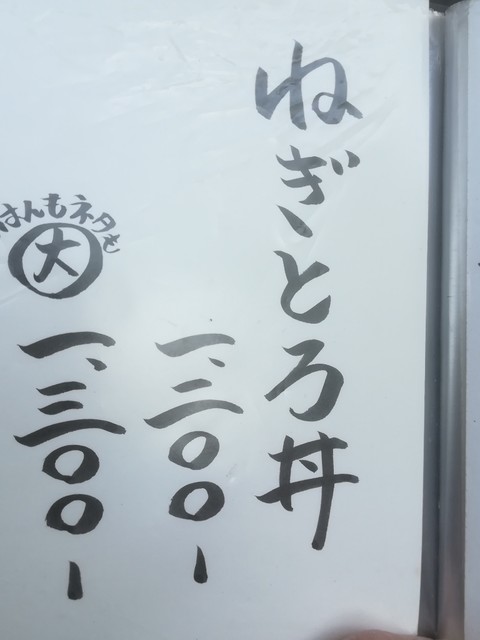 ねぎとろ丼
一、二〇〇-
はんもネタも
大
一、三〇〇-